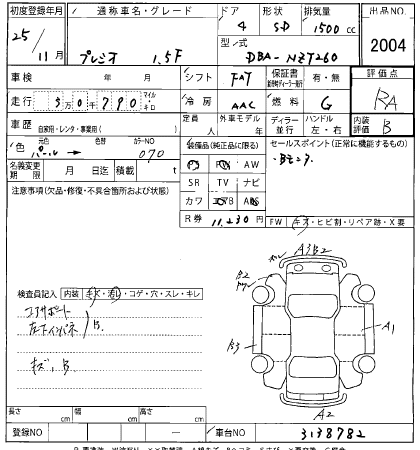 初度登録年月
25/11月
通称車名・グレード
プレミオ 1.5F
ドア
4
形状
SD
排気量
1500cc
型/式
DBA-NZT260
出品NO.
2004
車検 年 月
シフト
FAT
保証書
有・無
評価点
RA
走行
5万0千790
マイル・キロ
冷房
AAC
燃料
G
車歴
自家用・レンタ・事業用( )
定員
人
外車モデル
年
ディーラー・並行
ハンドル
左・右
内装評価
B
色
パール→
色替
カラーNO
070
装備品(純正品に限る)
セールスポイント(正常に機能するもの)
名義変更期限
月 日迄
積載
t
PS PW AW
SR TV ナビ
カワ エアB ABS
R券
11,230円
注意事項(欠品・修復・不具合箇所および状態)
FW
キズ・ヒビ割・リペア跡・X要
A3B2
B2
A1
B3
A2
検査員記入
内装
キズ・汚れ・コゲ・穴・スレ・キレ
コアサポート
左インパネ
B
キズ、B
長さ cm
幅 cm
高さ cm
登録NO
車台NO
3138782